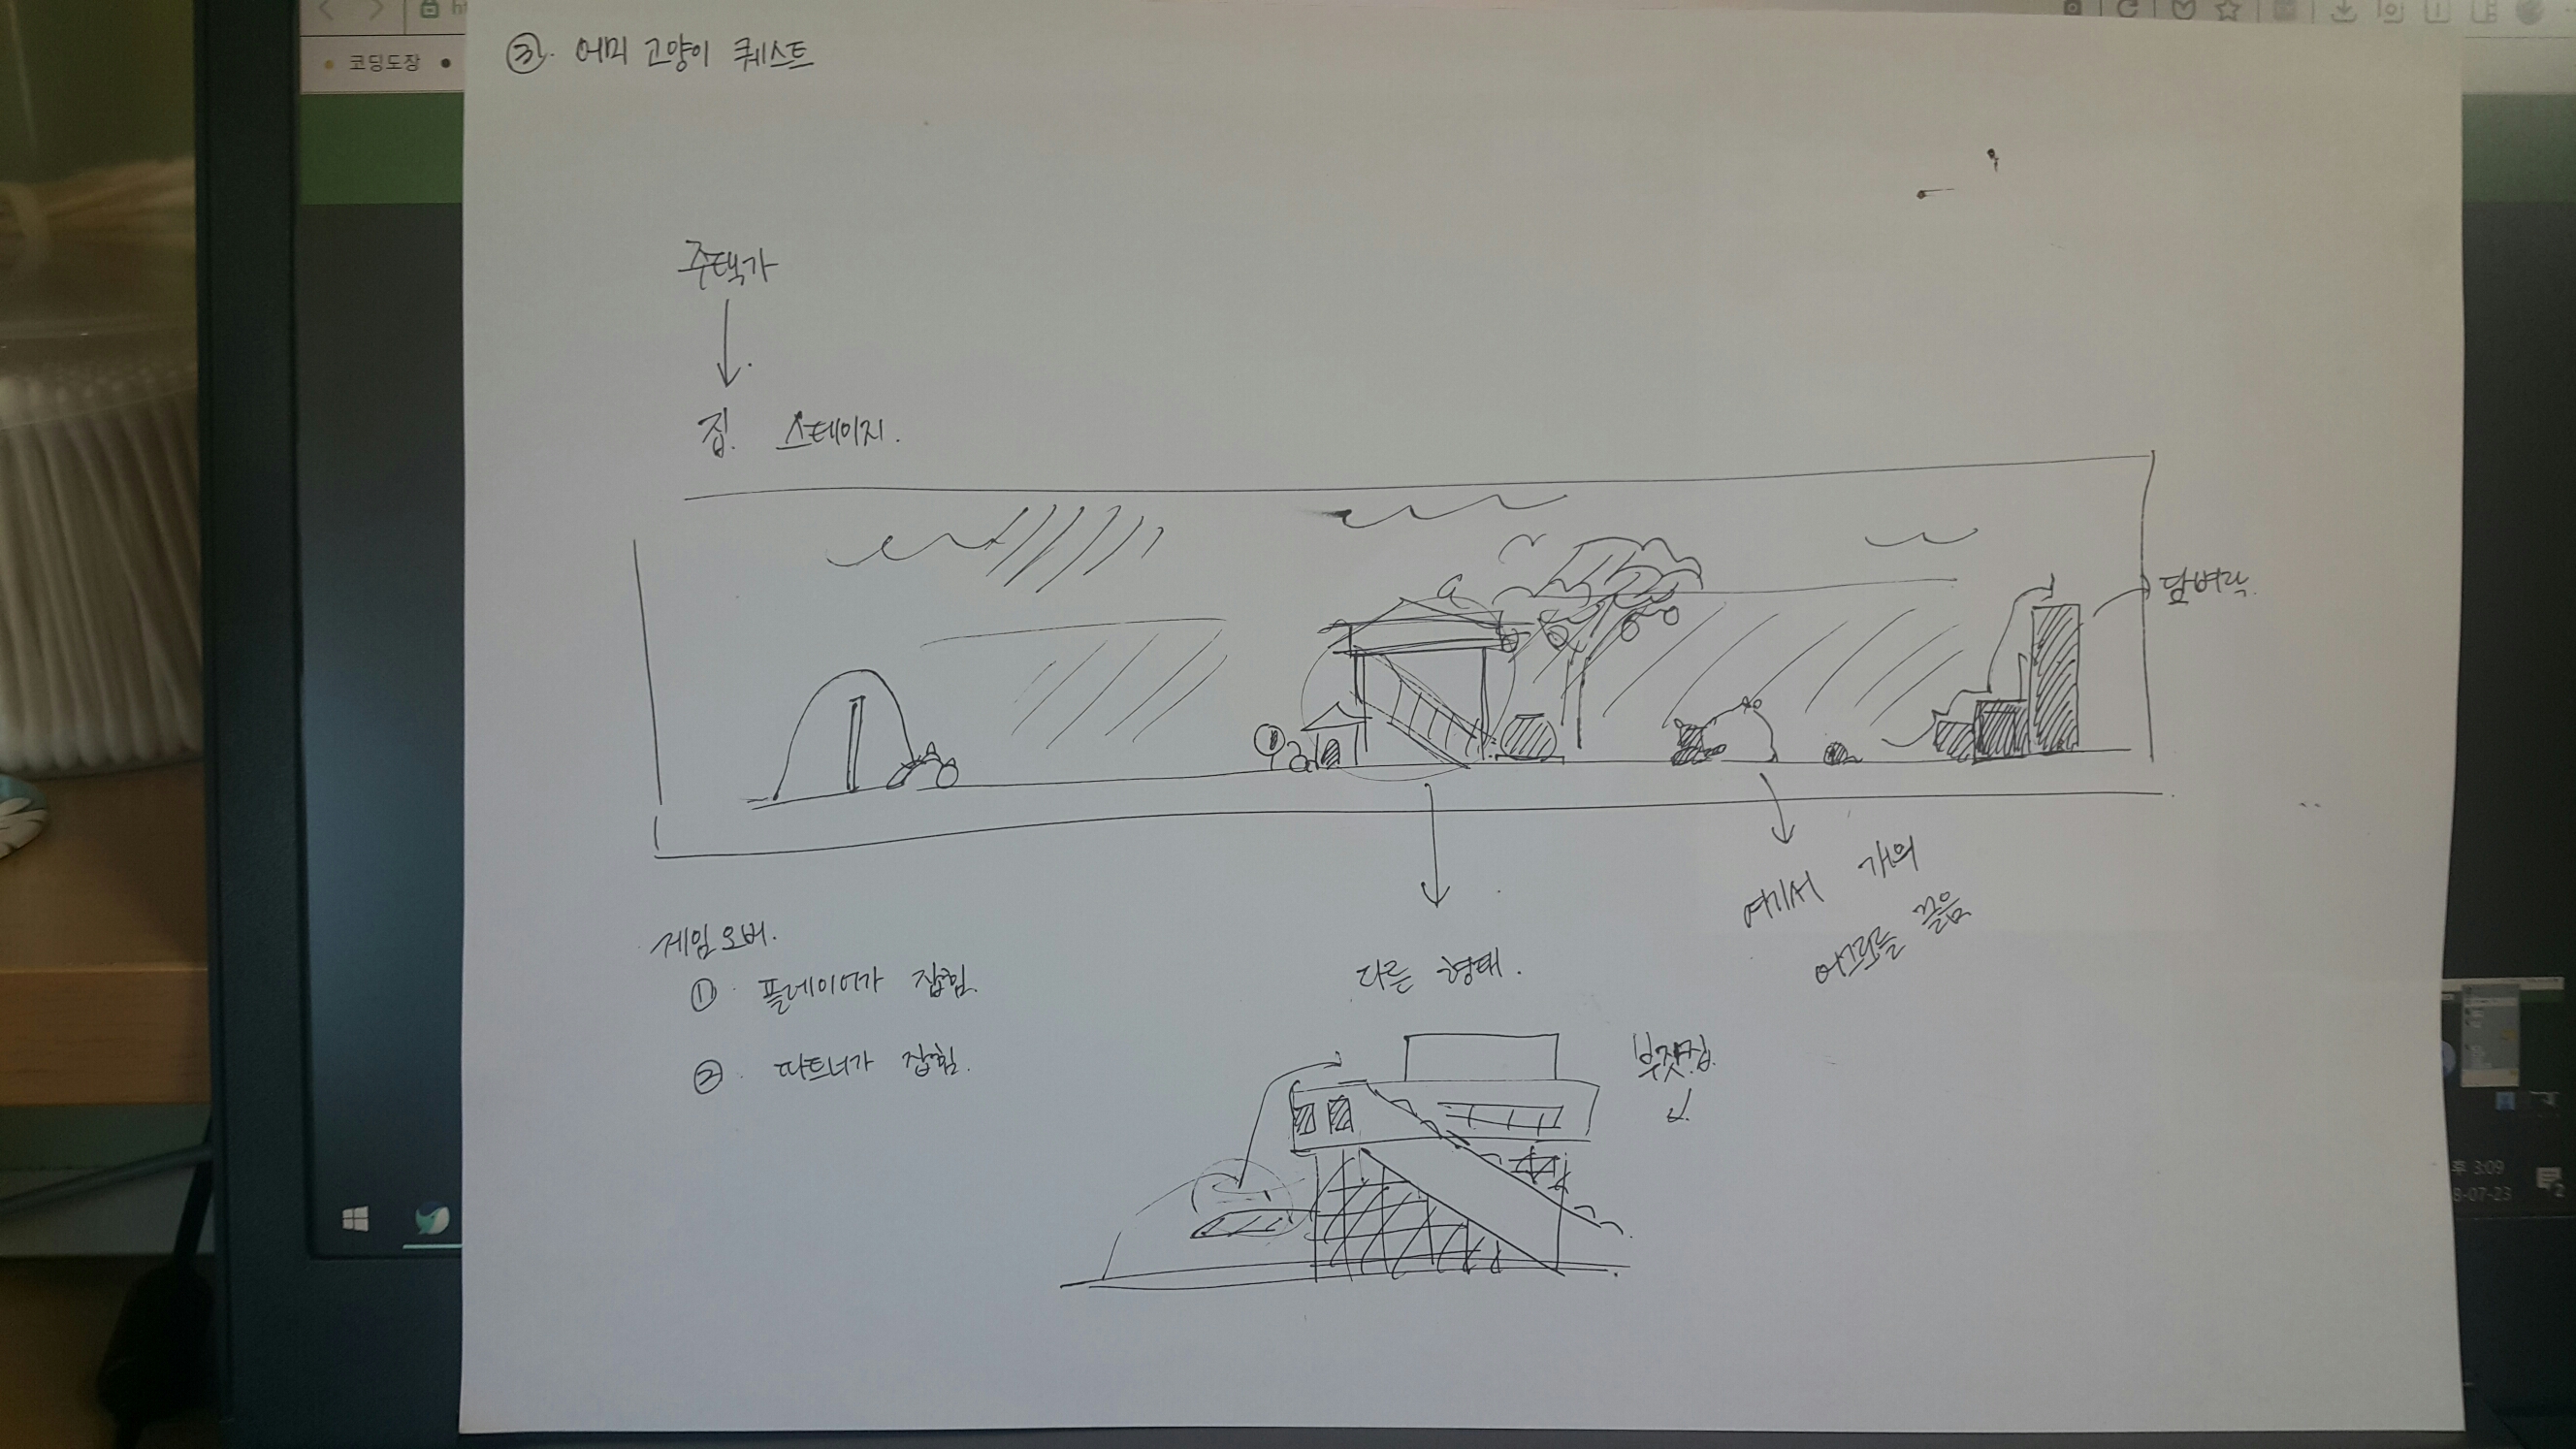 코딩도장
③. 어미 고양이 퀘스트
주택가
집. 스테이지.
담벼락.
여기서 개의
어그로를 끌음
게임오버.
① 플레이어가 잡힘.
② 파트너가 잡힘.
다른 형태.
부잣집.
후 3:09
8-07-23